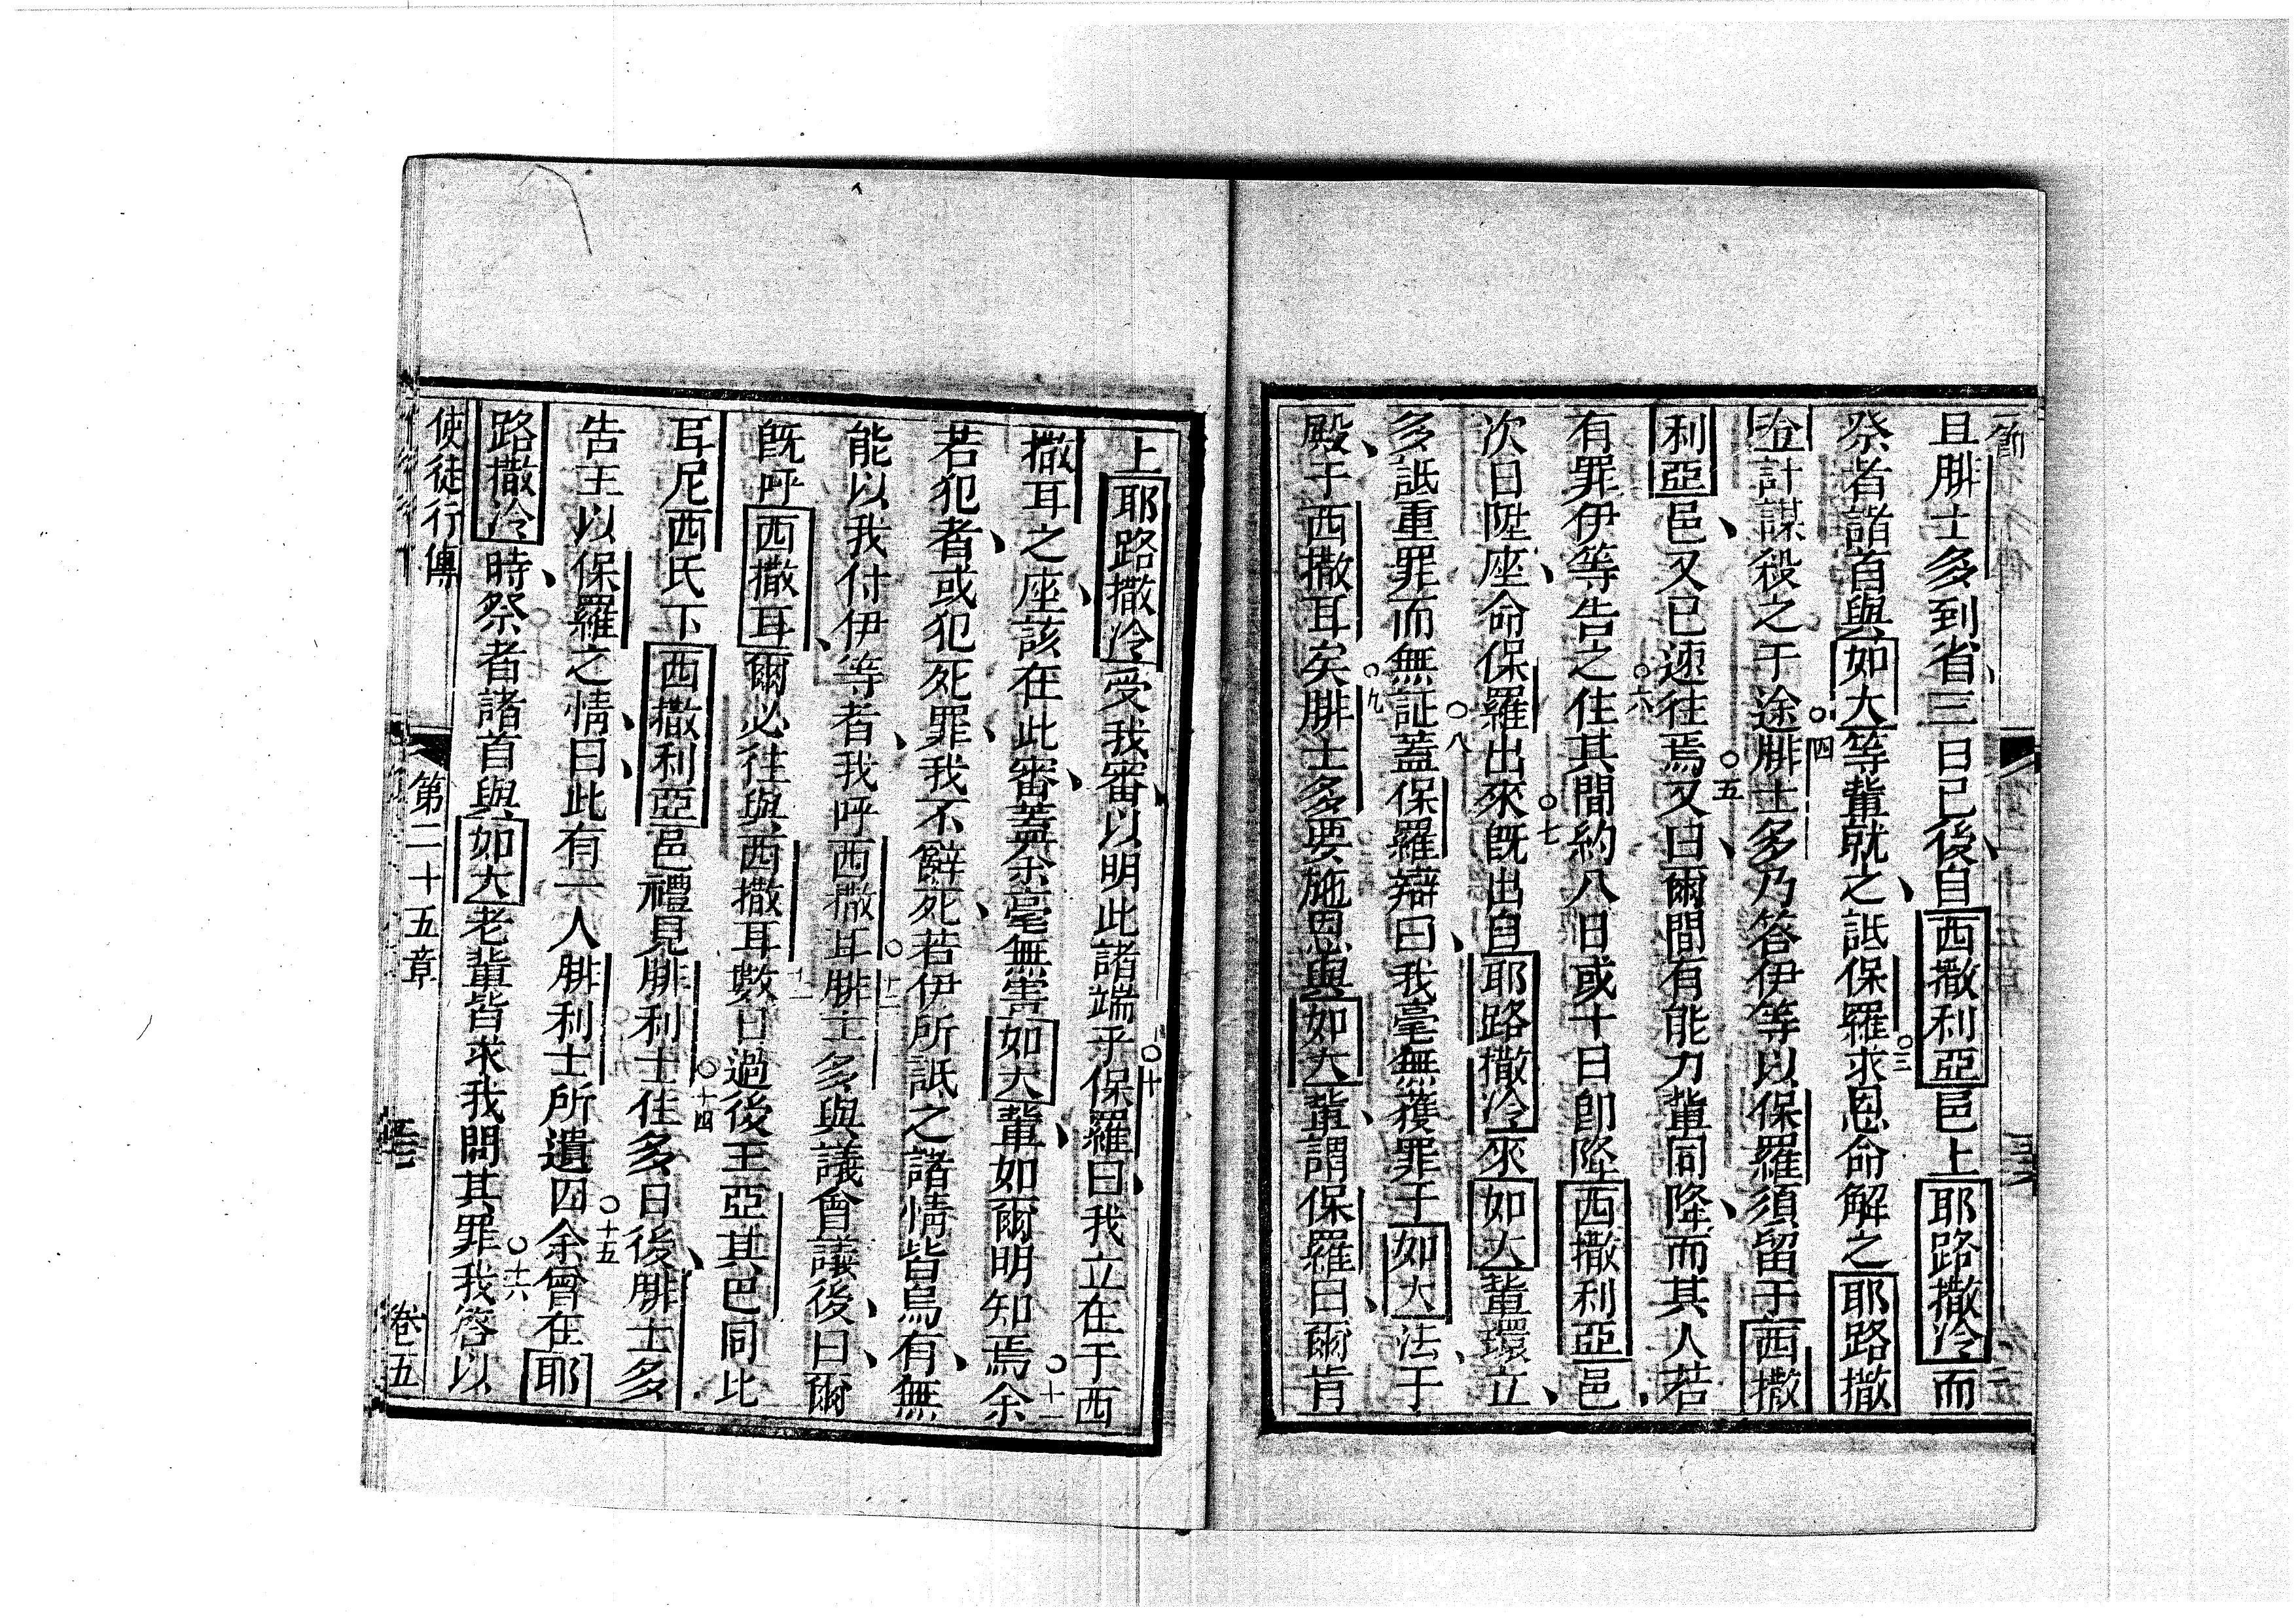 一節
且腓士多到省三日已後自西撒利亞邑上耶路撒冷而
祭者諸首與如大等輩就之詆保羅○三求恩命解之耶路撒
冷計謀殺之于途○四腓士多乃答伊等以保羅須留于西撒
利亞邑又已速往焉○五又曰爾間有能力輩同降而其人若
有罪伊等告之○六住其間約八日或十日即陞西撒利亞邑
次日陞座命保羅出來○七既出自耶路撒冷來如大輩環立
多詆重罪而無証○八蓋保羅辯曰我毫無獲罪于如大法于
殿于西撒耳矣○九腓士多要施恩與如大輩謂保羅曰爾肯
上耶路撒冷受我審以明此諸端乎○十保羅曰我立在于西
撒耳之座該在此審蓋余毫無害如大輩如爾明知焉○十一余
若犯者或犯死罪我不辭死若伊所詆之諸情皆烏有無
能以我付伊等者我呼西撒耳○十二腓士多與議會議後曰爾
既呼西撒耳爾必往與西撒耳十三數日過後王亞其巴同比
耳尼西氏下西撒利亞邑禮見腓利士○十四住多日後腓士多
告王以保羅之情曰此有一人腓利士所遺囚○十五余曾在耶
路撒冷時祭者諸首與如大老輩皆求我問其罪○十六我答以
使徒行傳 第二十五章 卷五